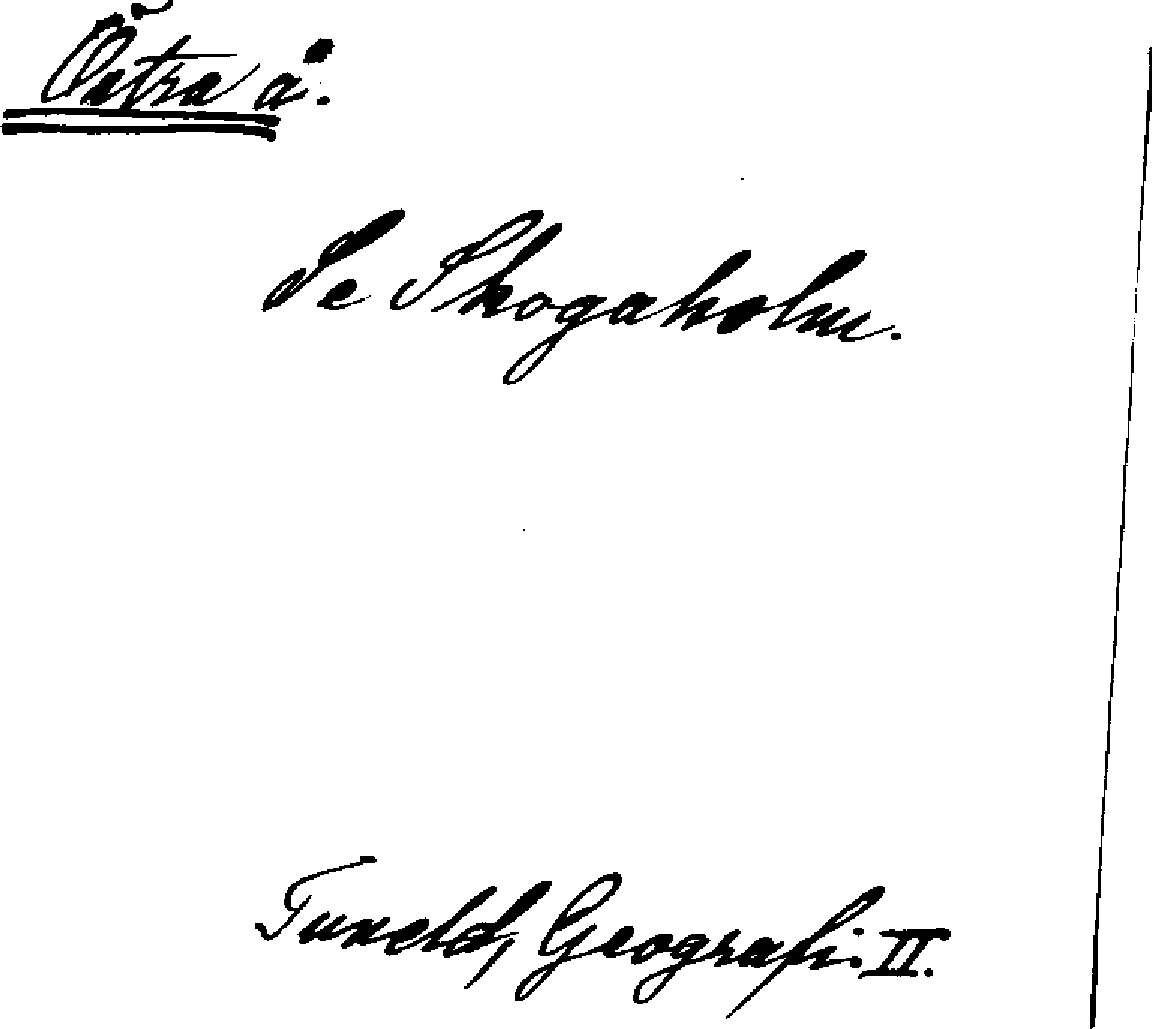 Östra å.
Se Skogaholm.
Tuneld, Geografi. II.